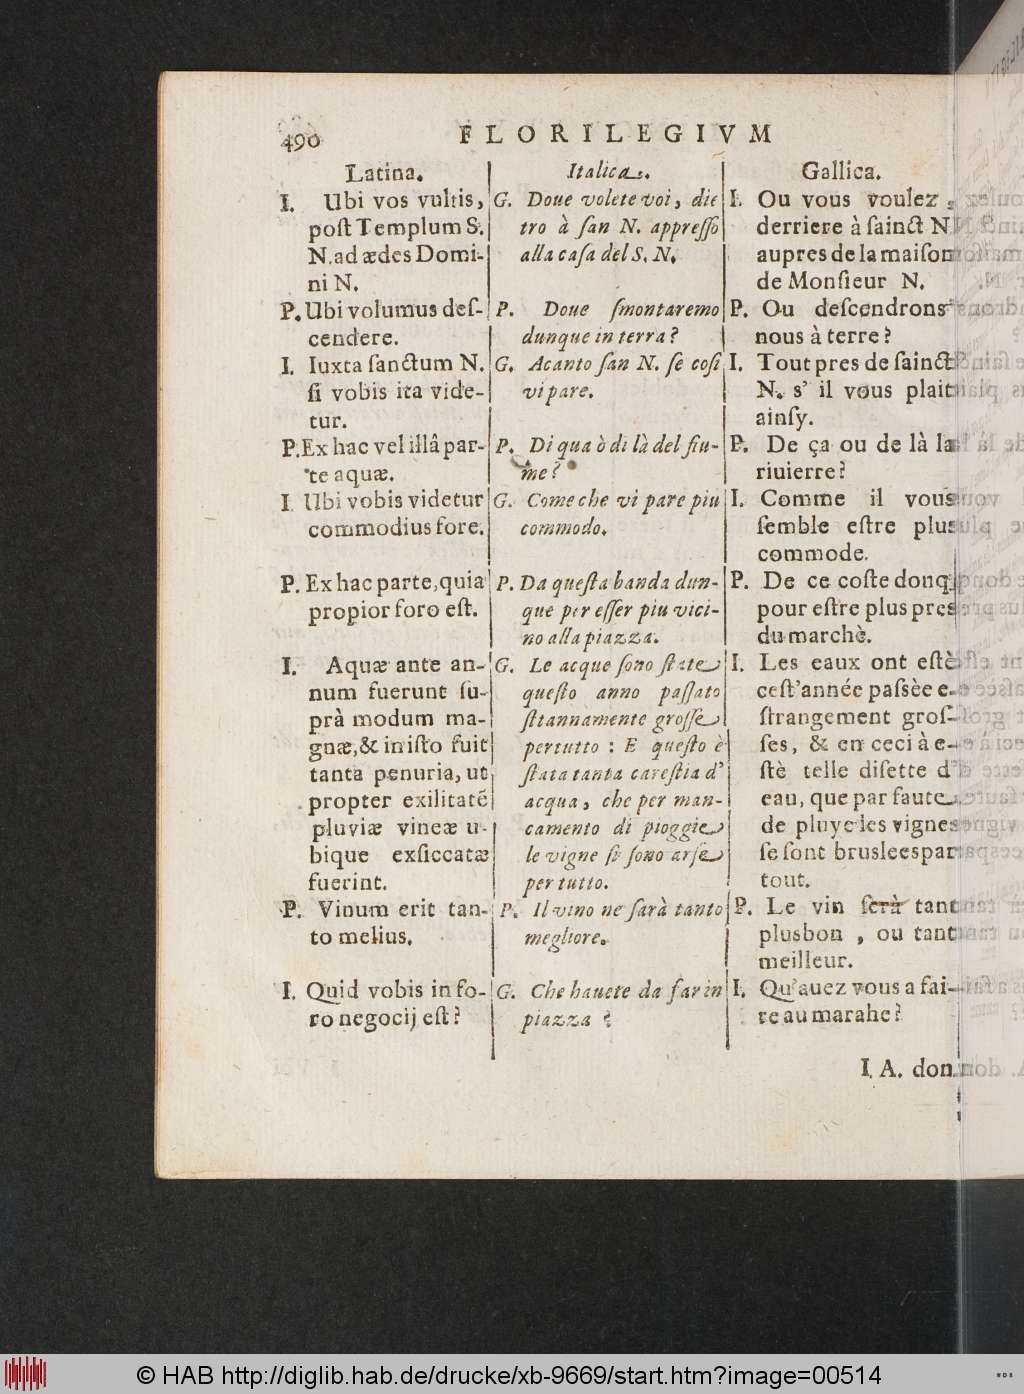 490
FLORILEGIVM
Latina.
I. Ubi vos vultis,
poſt Templum S.
N. ad ædes Domi-
ni N.
P. Ubi volumus deſ-
cendere.
I. Iuxta ſanctum N.
ſi vobis ita vide-
tur.
P. Ex hac vel illâ par-
te aquæ.
I Ubi vobis videtur
commodius fore.
P. Ex hac parte, quia
propior foro eſt.
I. Aquæ ante an-
num fuerunt ſu-
prà modum ma-
gnæ, & in iſto fuit
tanta penuria, ut
propter exilitatẽ
pluviæ vineæ u-
bique exſiccatæ
fuerint.
P. Vinum erit tan-
to melius.
I. Quid vobis in fo-
ro negocij eſt?
Italica.
G. Doue volete voi, die
tro à ſan N. appreſſo
alla caſa del S. N.
P. Doue ſmontaremo
dunque in terra?
G. Acanto ſan N. ſe coſi
vi pare.
P. Di qua ò di là del fiu-
me?
G. Come che vi pare piu
commodo.
P. Da queſta banda dun-
que per eſſer piu vici-
no alla piazza.
G. Le acque ſono ſtate
queſto anno paſſato
ſtrannamente groſſe
pertutto : E queſto è
ſtata tanta careſtia d'
acqua, che per man-
camento di pioggie
le vigne ſi ſono arſe
per tutto.
P. Il vino ne ſarà tanto
megliore.
G. Che hauete da far in
piazza ?
Gallica.
I. Ou vous voulez,
derriere à ſainct N
aupres de la maiſon
de Monſieur N.
P. Ou deſcendrons
nous à terre?
I. Tout pres de ſainct
N. s' il vous plait
ainſy.
P. De ça ou de là la
riuierre?
I. Comme il vous
ſemble eſtre plus
commode.
P. De ce coſte donq
pour eſtre plus pres
du marchè.
I. Les eaux ont eſtè
ceſt'année paſsèe e-
ſtrangement groſ-
ſes, & en ceci à e-
ſtè telle diſette d'
eau, que par faute
de pluye les vignes
ſe ſont bruslees par
tout.
P. Le vin ſerà tant
plus bon , ou tant
meilleur.
I. Qu'auez vous a fai-
re au marahe?
I. A. don
© HAB http://diglib.hab.de/drucke/xb-9669/start.htm?image=00514